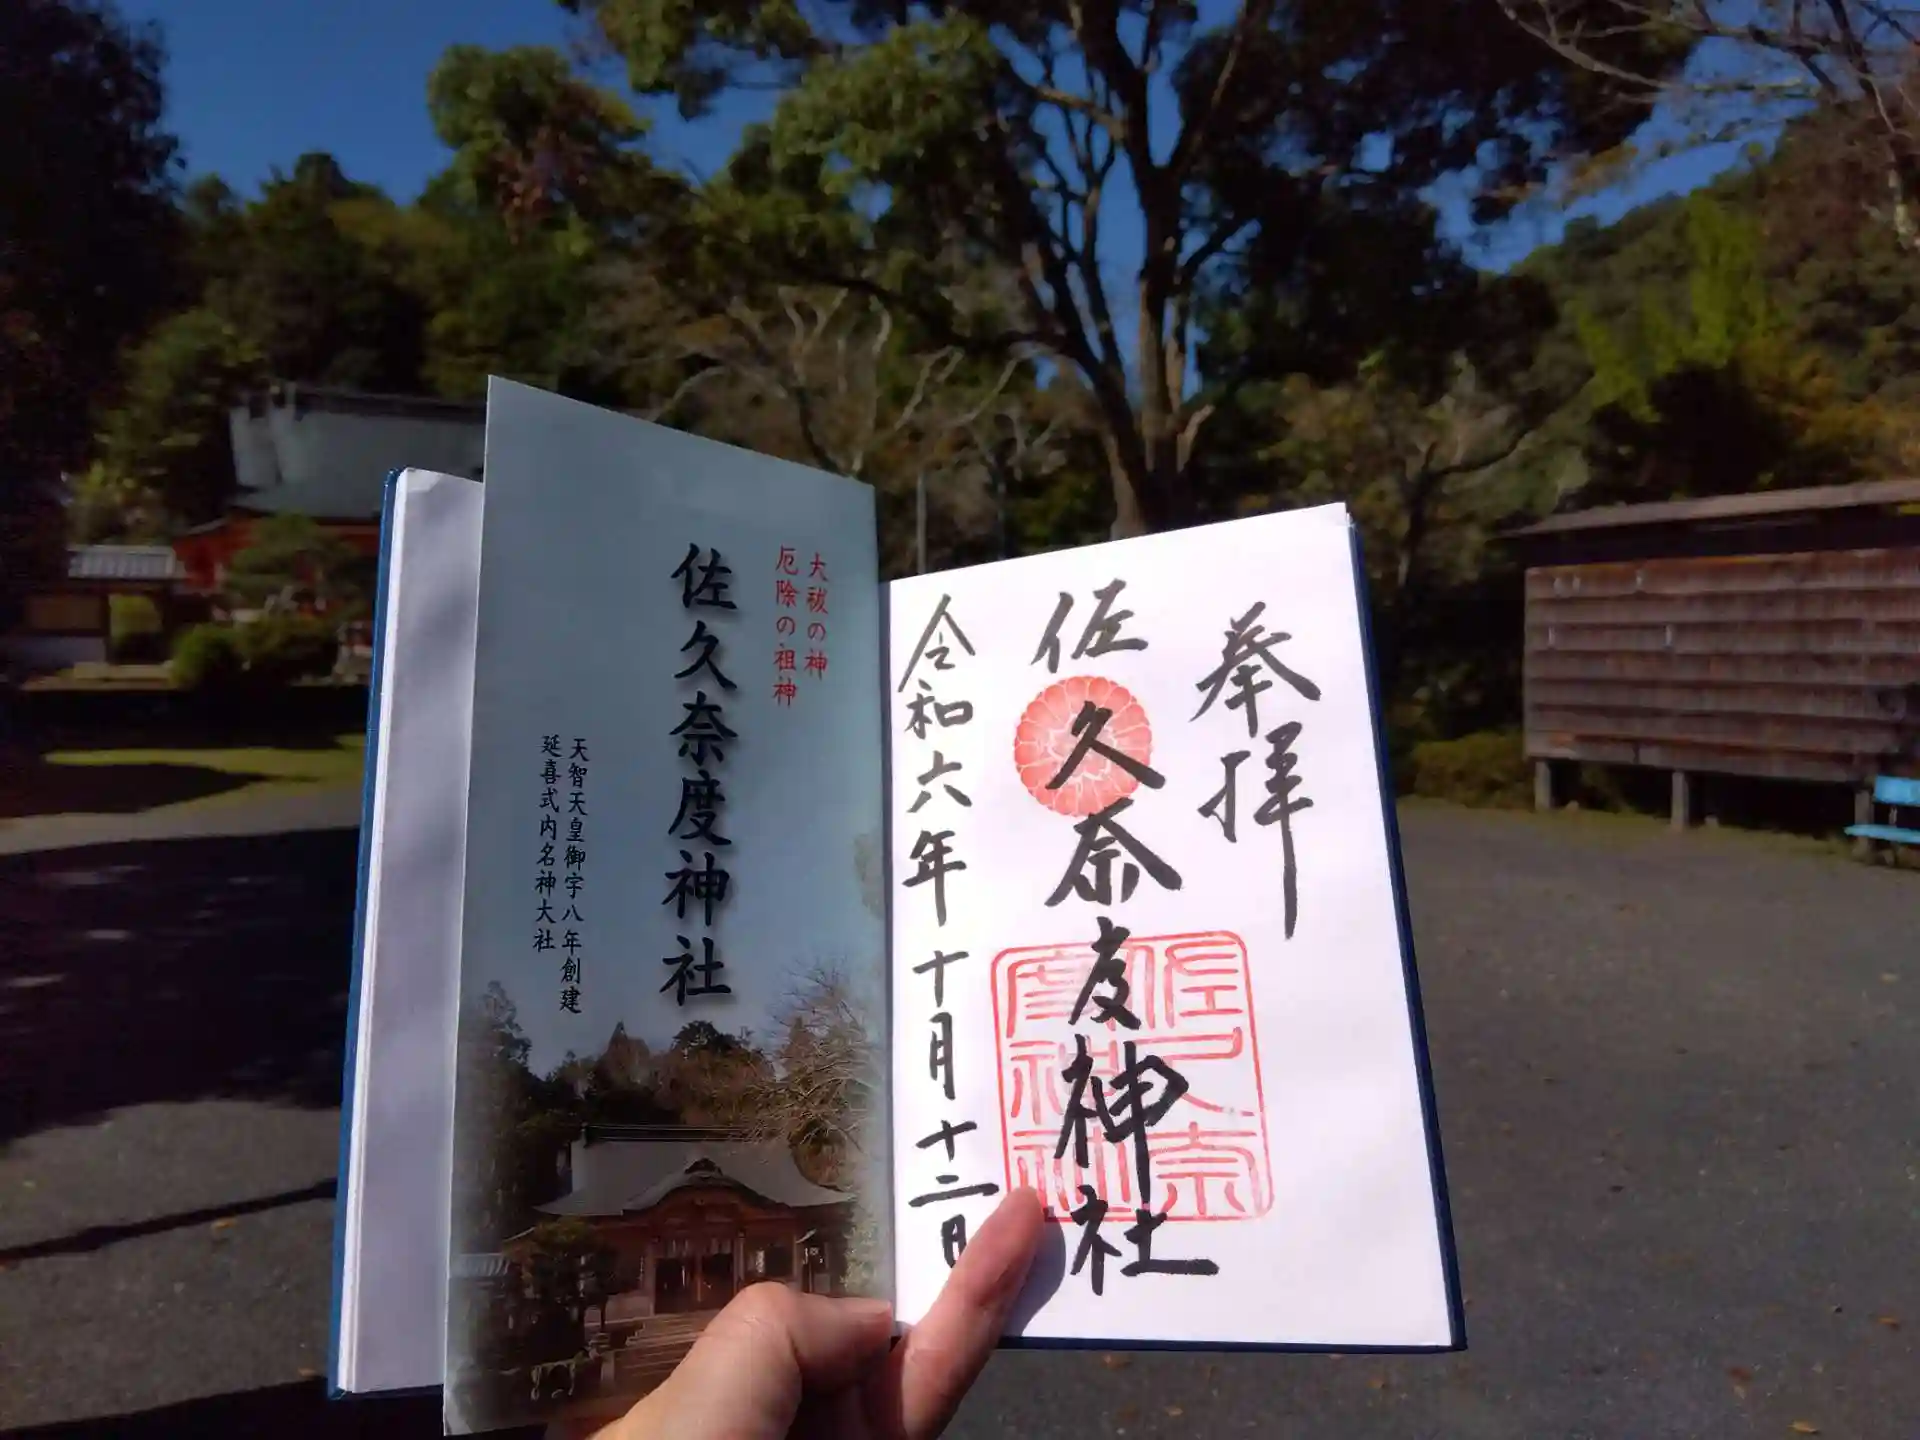 大祓の神
厄除の祖神
佐久奈度神社
天智天皇御宇八年創建
延喜式内名神大社
奉拝
佐久奈度神社
令和六年十月十二日
佐久奈
度神社